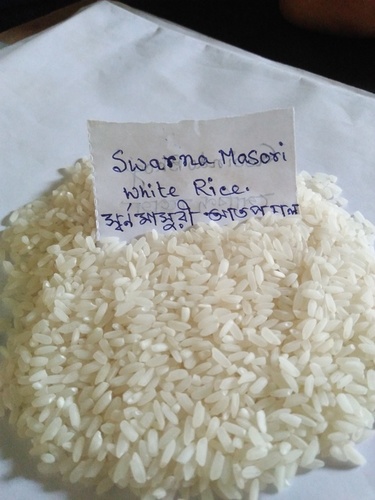 Swarna Masori
White Rice.
স্বর্ন মাসুরী আতপ চাল